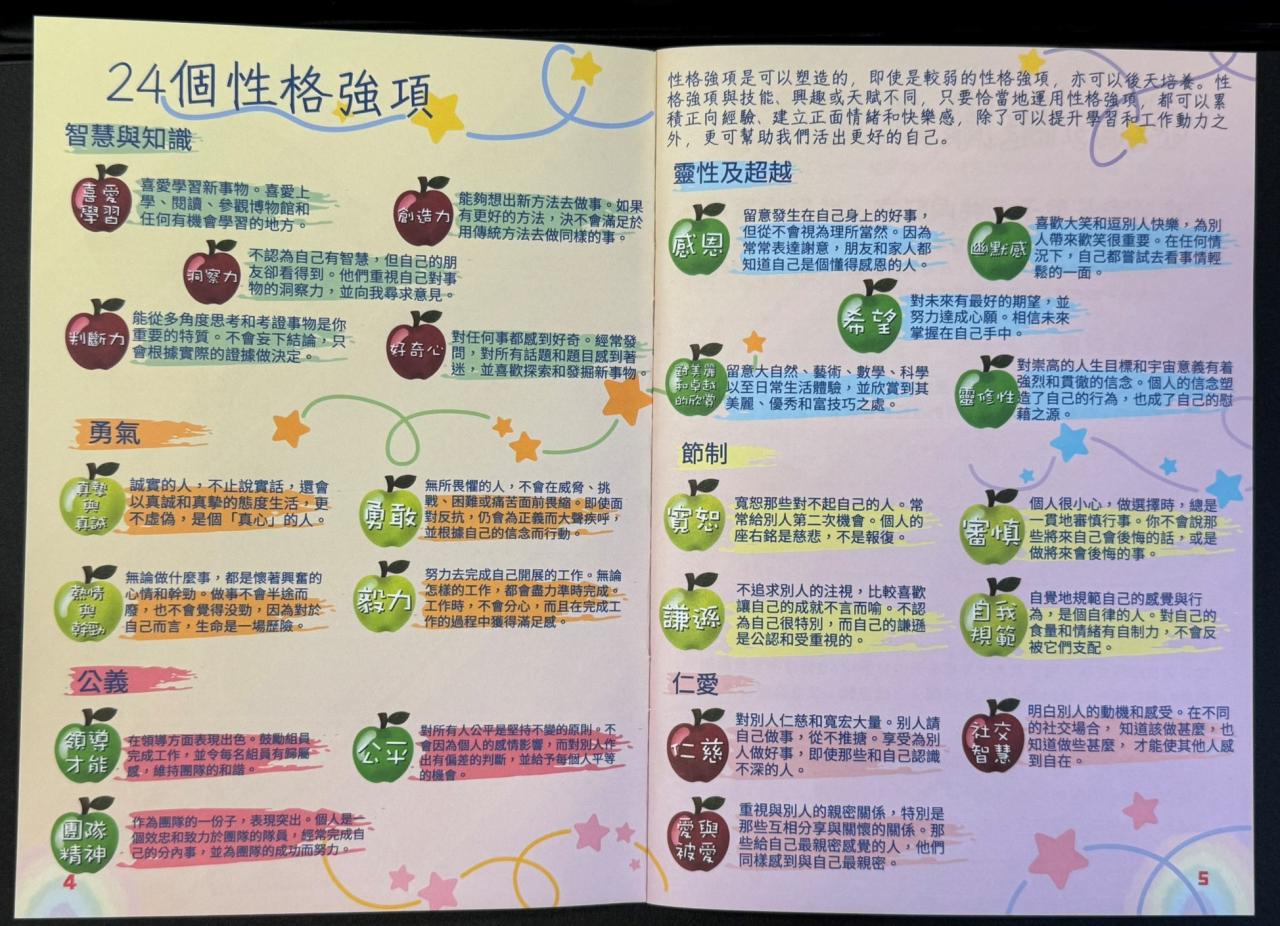 24個性格強項
智慧與知識
喜愛
學習
喜愛學習新事物。喜愛上
學、閱讀、參觀博物館和
任何有機會學習的地方。
創造力
能夠想出新方法去做事。如果
有更好的方法，決不會滿足於
用傳統方法去做同樣的事。
洞察力
不認為自己有智慧，但自己的朋
友卻看得到。他們重視自己對事
物的洞察力，並向我尋求意見。
判斷力
能從多角度思考和考證事物是你
重要的特質。不會妄下結論，只
會根據實際的證據做決定。
好奇心
對任何事都感到好奇。經常發
問，對所有話題和題目感到著
迷，並喜歡探索和發掘新事物。
勇氣
真摯
與
真誠
誠實的人，不止說實話，還會
以真誠和真摯的態度生活，更
不虛偽，是個「真心」的人。
勇敢
無所畏懼的人，不會在威脅、挑
戰、困難或痛苦面前畏縮。即使面
對反抗，仍會為正義而大聲疾呼，
並根據自己的信念而行動。
熱情
與
幹勁
無論做什麼事，都是懷著興奮的
心情和幹勁。做事不會半途而
廢，也不會覺得没勁，因為對於
自己而言，生命是一場歷險。
毅力
努力去完成自己開展的工作。無論
怎樣的工作，都會盡力準時完成。
工作時，不會分心，而且在完成工
作的過程中獲得滿足感。
公義
領導
才能
在領導方面表現出色。鼓勵組員
完成工作，並令每名組員有歸屬
感，維持團隊的和諧。
公平
對所有人公平是堅持不變的原則。不
會因為個人的感情影響，而對別人作
出有偏差的判斷，並給予每個人平等
的機會。
團隊
精神
作為團隊的一份子，表現突出。個人是一
個效忠和致力於團隊的隊員，經常完成自
己的分內事，並為團隊的成功而努力。
4
性格強項是可以塑造的，即使是較弱的性格強項，亦可以後天培養。性
格強項與技能、興趣或天賦不同，只要恰當地運用性格強項，都可以累
積正向經驗、建立正面情緒和快樂感，除了可以提升學習和工作動力之
外，更可幫助我們活出更好的自己。
靈性及超越
感恩
留意發生在自己身上的好事，
但從不會視為理所當然。因為
常常表達謝意，朋友和家人都
知道自己是個懂得感恩的人。
幽默感
喜歡大笑和逗別人快樂，為別
人帶來歡笑很重要。在任何情
況下，自己都嘗試去看事情輕
鬆的一面。
希望
對未來有最好的期望，並
努力達成心願。相信未來
掌握在自己手中。
對美麗
和卓越
的欣賞
留意大自然、藝術、數學、科學
以至日常生活體驗，並欣賞到其
美麗、優秀和富技巧之處。
靈修性
對崇高的人生目標和宇宙意義有着
強烈和貫徹的信念。個人的信念塑
造了自己的行為，也成了自己的慰
藉之源。
節制
寬恕
寬恕那些對不起自己的人。常
常給別人第二次機會。個人的
座右銘是慈悲，不是報復。
審慎
個人很小心，做選擇時，總是
一貫地審慎行事。你不會說那
些將來自己會後悔的話，或是
做將來會後悔的事。
謙遜
不追求別人的注視，比較喜歡
讓自己的成就不言而喻。不認
為自己很特別，而自己的謙遜
是公認和受重視的。
自我
規範
自覺地規範自己的感覺與行
為，是個自律的人。對自己的
食量和情緒有自制力，不會反
被它們支配。
仁愛
仁慈
對別人仁慈和寬宏大量。別人請
自己做事，從不推搪。享受為別
人做好事，即使那些和自己認識
不深的人。
社交
智慧
明白別人的動機和感受。在不同
的社交場合，知道該做甚麼，也
知道做些甚麼，才能使其他人感
到自在。
愛與
被愛
重視與別人的親密關係，特別是
那些互相分享與關懷的關係。那
些給自己最親密感覺的人，他們
同樣感到與自己最親密。
5